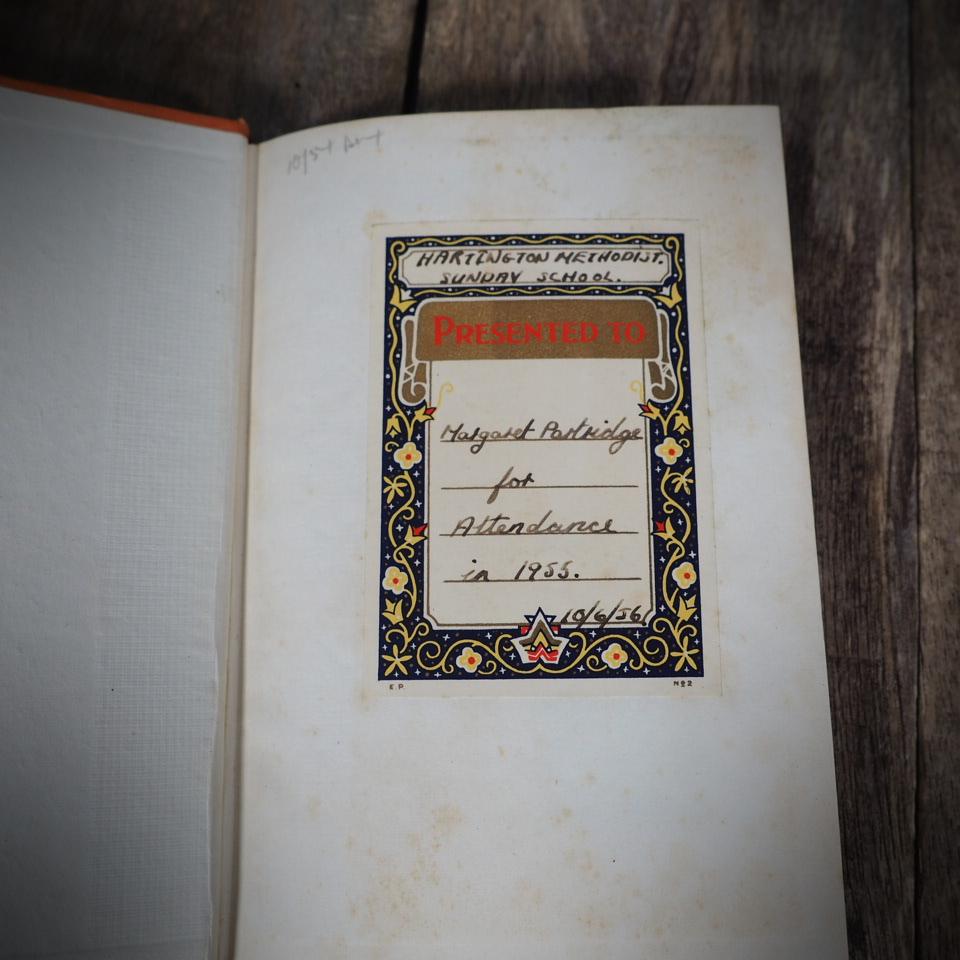 HARTINGTON METHODIST.
SUNDAY SCHOOL.
PRESENTED TO
Margaret Partridge
for
Attendance
in 1955.
10/6/56
E.P.
No 2